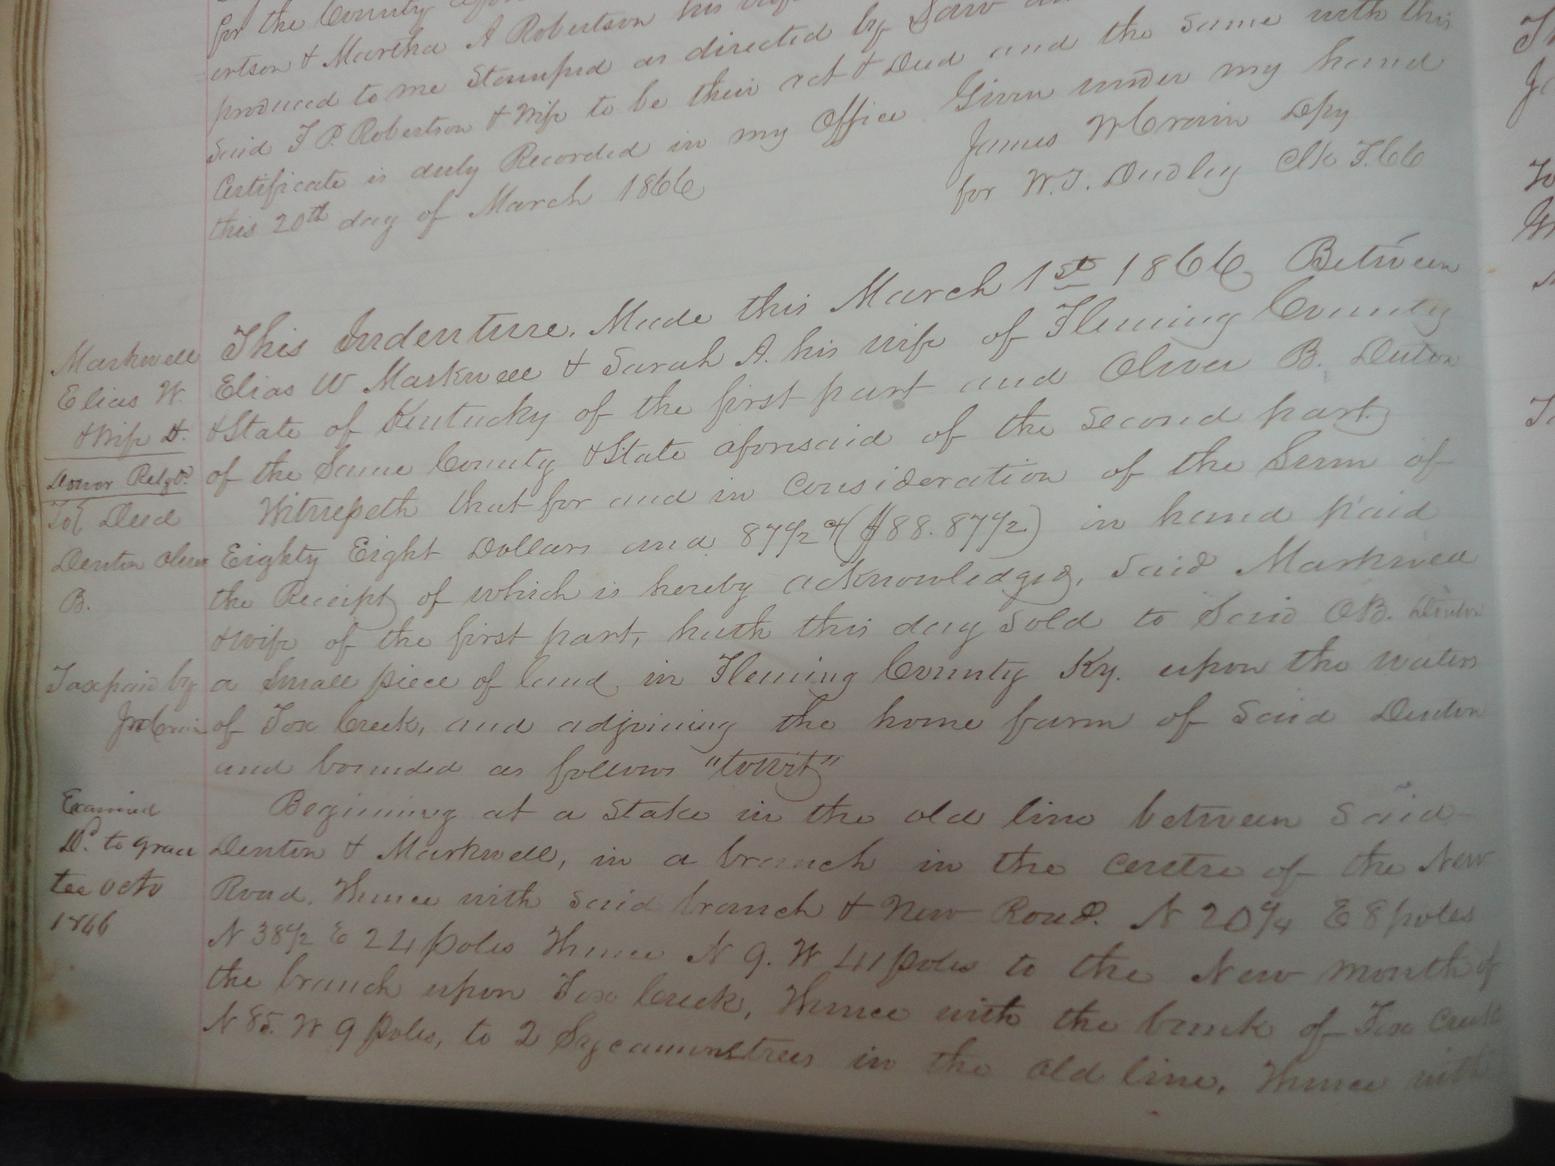 for the County
ertson & Martha A Robertson his wife
produced to me Stamped as directed by Law
Said T P. Robertson & Wife to be their act & Deed and the same with this
Certificate is duly Recorded in my Office Given under my hand
this 20th day of March 1866
James W Crain Dpy
for W. T. Dudley Clk F.CC
This Indenture. Made this March 1st 1866 Between
Elias W Markwell & Sarah A. his wife of Fleming County
&State of Kentucky of the first part and Oliver B. Denton
of the Same County &State aforesaid of the second part
Witnesseth that for and in consideration of the Sum of
Eighty Eight Dollars and 87½ ct ($88.87½) in hand paid
the Receipt of which is hereby acknowledged, said Markwell
&wife of the first part, hath this day sold to Said OB. Denton
a Small piece of land in Fleming County Ky. upon the waters
of Fox Creek, and adjoining the home farm of Said Denton
and bounded as follows "towit"
Beginning at a Stake in the old line between said
Denton & Markwell, in a branch in the centre of the New
Road. Thence with said branch & New Road. N 20¼ E 8 poles
N 38½ E 24 poles Thence N 9. W 41 poles to the New mouth of
the branch upon Fox Creek, Thence with the bank of Fox Creek
N 85. W 9 poles, to 2 Sycamore trees in the old line, Thence with
Markwell
Elias W.
&Wife D.
Dower Relqd.
To Deed
Denton Oliver
B.
Tax paid by
Examined
Dd. to gran
tee octo
1866